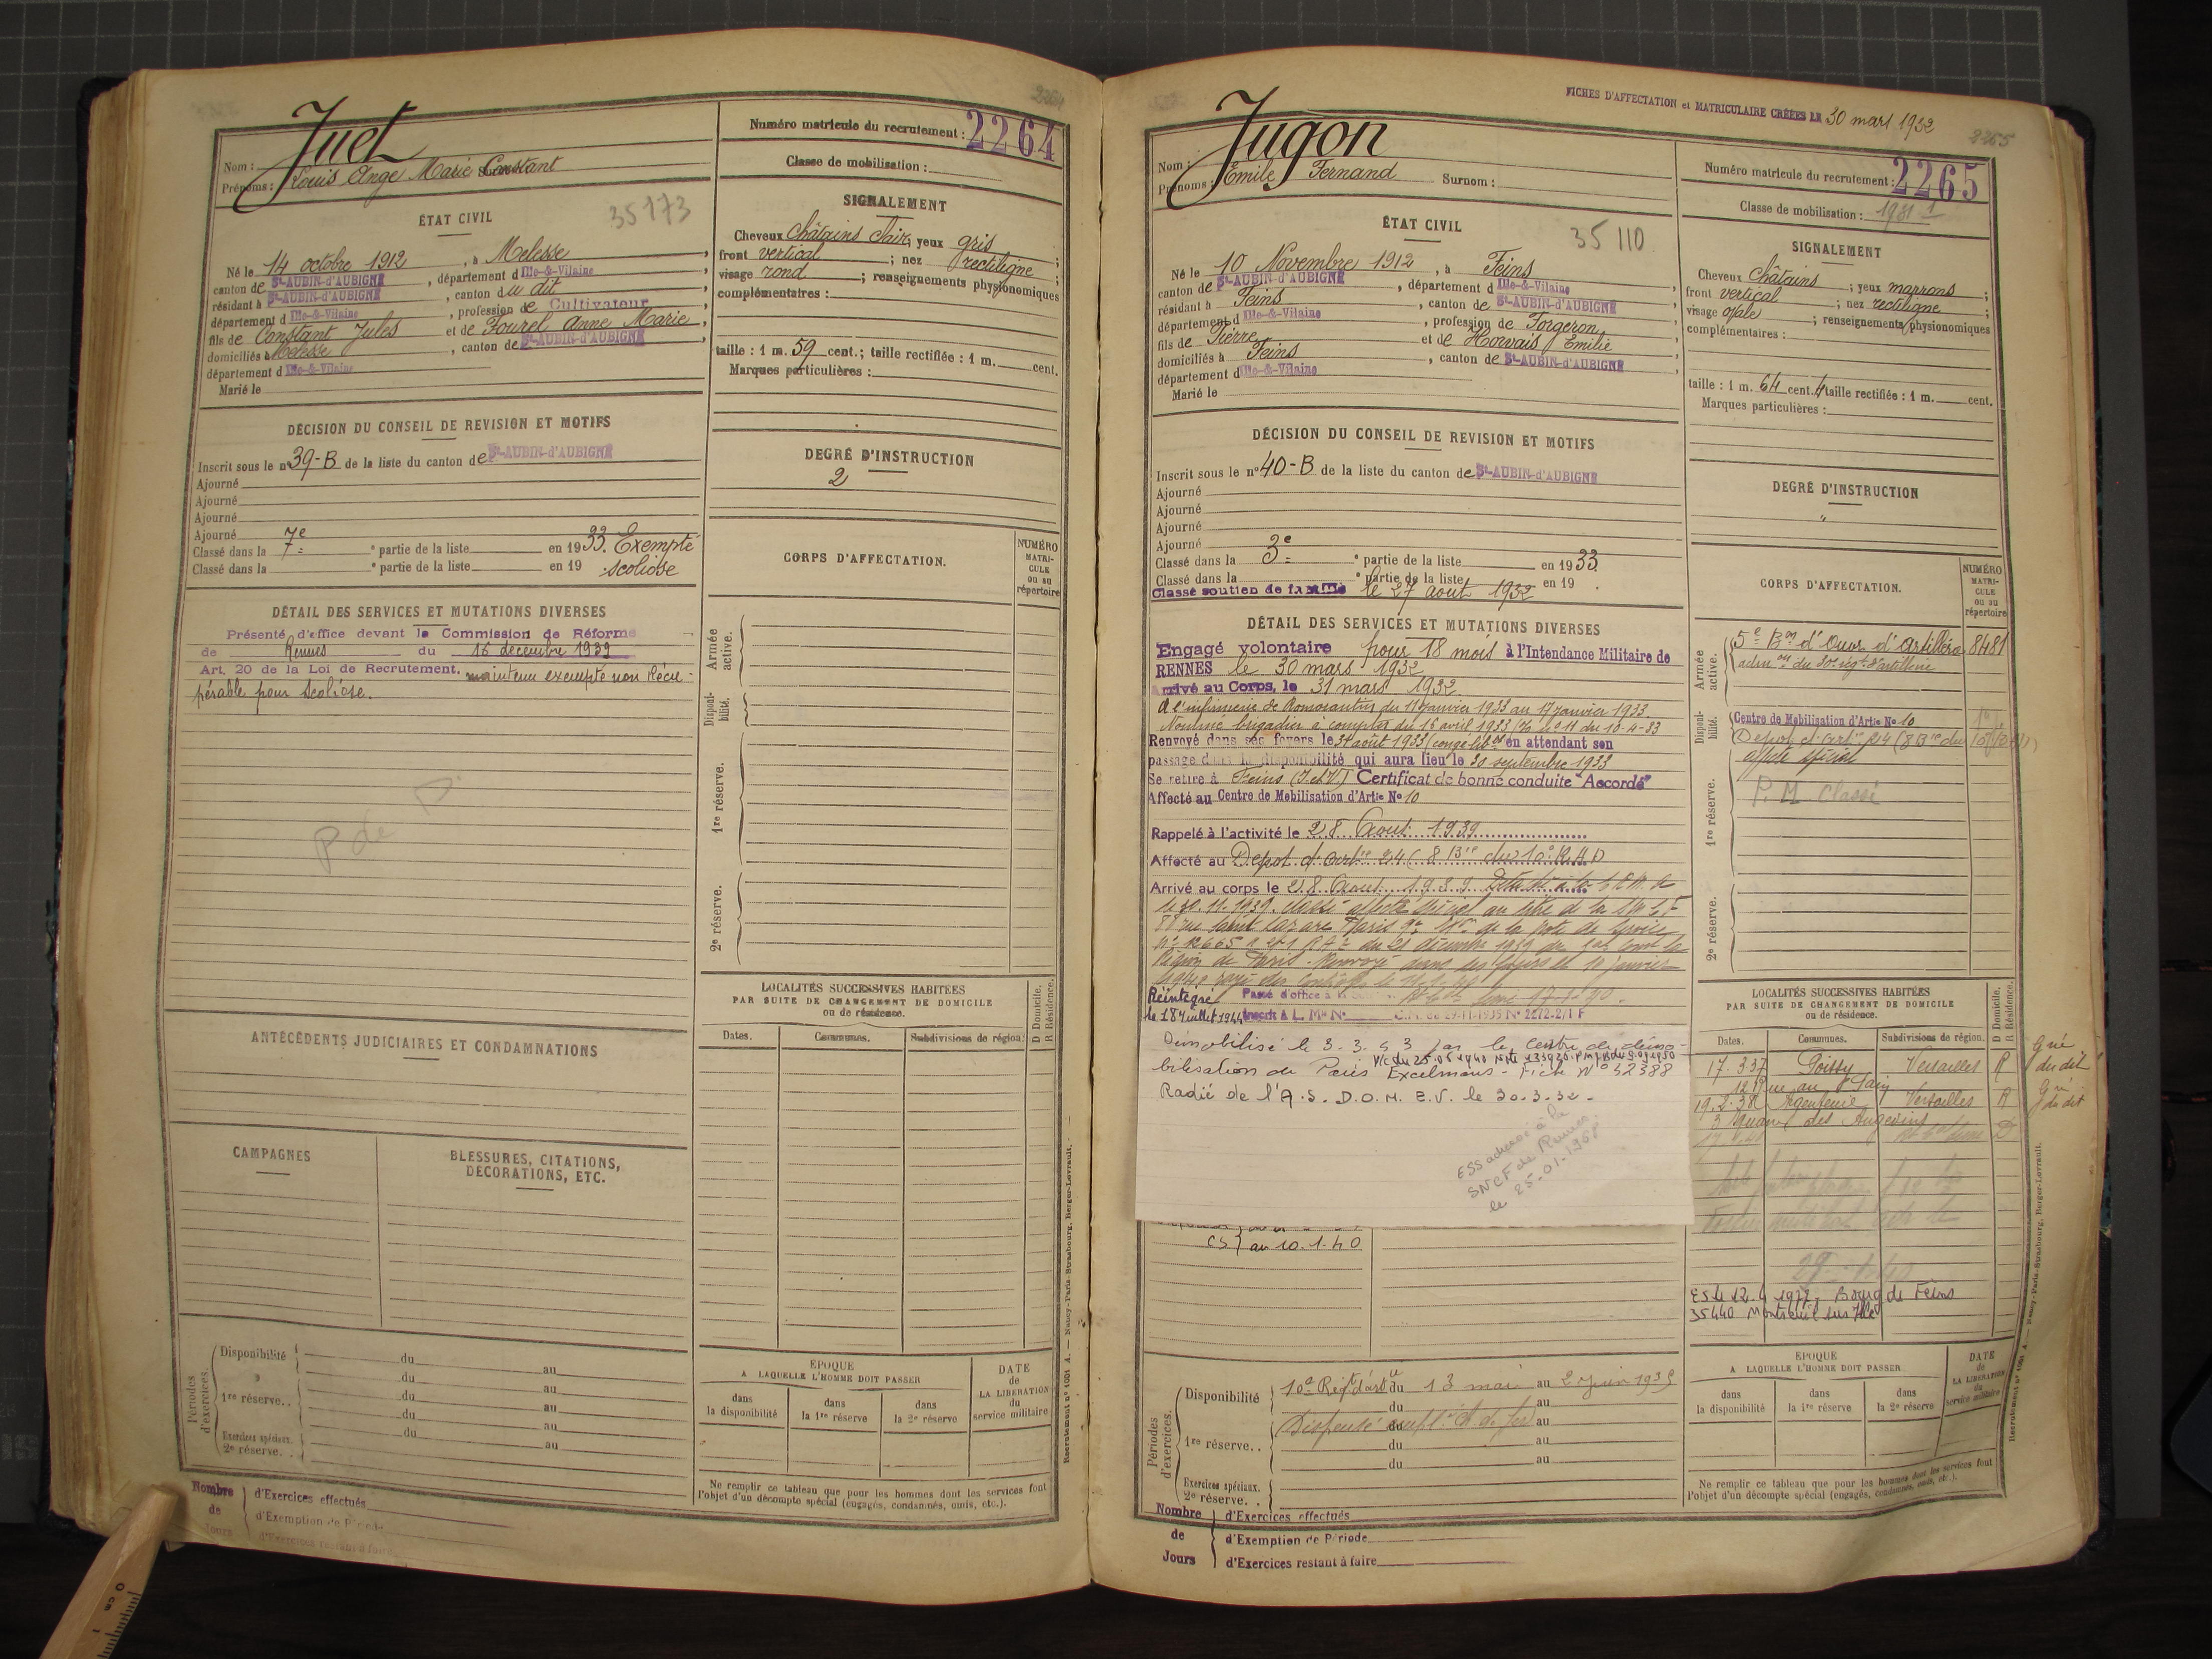 2264
Juet
Nom :
Prénoms : Louis Ange Marie Constant
Numéro matricule du recrutement : 2264
Classe de mobilisation :
ÉTAT CIVIL
35173
Né le 14 octobre 1912, à Melesse,
canton de St-AUBIN-d'AUBIGNÉ, département d Ille-&-Vilaine,
résidant à St-AUBIN-d'AUBIGNÉ, canton du dit,
département d Ille-&-Vilaine, profession de Cultivateur,
fils de Constant Jules et de Fourel Anne Marie,
domiciliés à Melesse, canton de St-AUBIN-d'AUBIGNÉ,
département d Ille-&-Vilaine
Marié le
SIGNALEMENT
Cheveux châtains clair; yeux gris;
front vertical; nez rectiligne;
visage rond; renseignements physionomiques
complémentaires :
taille : 1 m. 59 cent.; taille rectifiée : 1 m. cent.
Marques particulières :
DÉCISION DU CONSEIL DE REVISION ET MOTIFS
Inscrit sous le n° 39-B de la liste du canton de St-AUBIN-d'AUBIGNÉ
Ajourné
Ajourné
Ajourné
Ajourné
Classé dans la 7e partie de la liste en 1933. Exempté
Classé dans la partie de la liste en 19 scoliose
DEGRÉ D'INSTRUCTION
2
CORPS D'AFFECTATION.
NUMÉRO MATRICULE ou au répertoire
DÉTAIL DES SERVICES ET MUTATIONS DIVERSES
Présenté d'office devant la Commission de Réforme
de Rennes du 16 décembre 1939
Art. 20 de la Loi de Recrutement. maintenu exempté non Récu-
pérable pour Scoliose.
P de
Armée active.
Disponibilité.
1re réserve.
2e réserve.
ANTÉCÉDENTS JUDICIAIRES ET CONDAMNATIONS
LOCALITÉS SUCCESSIVES HABITÉES
PAR SUITE DE CHANGEMENT DE DOMICILE
ou de résidence.
D Domicile.
R Résidence.
Dates. Communes. Subdivisions de région.
CAMPAGNES
BLESSURES, CITATIONS,
DÉCORATIONS, ETC.
Périodes d'exercices.
Disponibilité du au
du au
1re réserve.. du au
du au
Exercices spéciaux. du au
2e réserve.
ÉPOQUE
A LAQUELLE L'HOMME DOIT PASSER
dans la disponibilité
dans la 1re réserve
dans la 2e réserve
DATE de LA LIBÉRATION du service militaire
Ne remplir ce tableau que pour les hommes dont les services font
l'objet d'un décompte spécial (engagés, condamnés, omis, etc.).
Nombre de Jours
d'Exercices effectués
d'Exemption de Période
d'Exercices restant à faire
Recrutement n° 1001 A. — Nancy-Paris-Strasbourg, Berger-Levrault.
FICHES D'AFFECTATION et MATRICULAIRE CRÉÉES LE 30 mars 1932
2265
Jugon
Nom :
Prénoms : Emile Fernand Surnom :
Numéro matricule du recrutement : 2265
Classe de mobilisation : 1931
ÉTAT CIVIL
35110
Né le 10 Novembre 1912, à Feins
canton de St-AUBIN-d'AUBIGNÉ, département d Ille-&-Vilaine
résidant à Feins, canton de St-AUBIN-d'AUBIGNÉ
département d Ille-&-Vilaine, profession de Forgeron,
fils de Pierre et de Horvais Emilie
domiciliés à Feins, canton de St-AUBIN-d'AUBIGNÉ,
département d Ille-&-Vilaine
Marié le
SIGNALEMENT
Cheveux Châtains; yeux marrons;
front vertical; nez rectiligne;
visage ovale; renseignements physionomiques
complémentaires :
taille : 1 m. 64 cent. 4 taille rectifiée : 1 m. cent.
Marques particulières :
DÉCISION DU CONSEIL DE REVISION ET MOTIFS
Inscrit sous le n° 40-B de la liste du canton de St-AUBIN-d'AUBIGNÉ
Ajourné
Ajourné
Ajourné
Ajourné
Classé dans la 3e partie de la liste en 1933.
Classé dans la partie de la liste en 19 .
Classé soutien de famille le 27 août 1932
DEGRÉ D'INSTRUCTION
"
CORPS D'AFFECTATION.
NUMÉRO MATRICULE ou au répertoire
DÉTAIL DES SERVICES ET MUTATIONS DIVERSES
Engagé volontaire pour 18 mois à l'Intendance Militaire de
RENNES le 30 mars 1932
Arrivé au Corps, le 31 mars 1932
A l'infirmerie de Romorantin du 11 janvier 1933 au 17 janvier 1933.
Nommé brigadier à compter du 16 avril 1933 du 10-4-33
Renvoyé dans ses foyers le 31 août 1933 (congé lib) en attendant son
passage dans la disponibilité qui aura lieu le 30 septembre 1933
Se retire à Feins (I et V) Certificat de bonne conduite "Accordé"
Affecté au Centre de Mobilisation d'Artie No 10
Rappelé à l'activité le 28 Août 1939
Affecté au Depot d'artie 24 (8 Bie du 10e R.A.D
Arrivé au corps le 28 Août 1939
le 30.11.1939. classé affecté spécial au titre de la S.N.C.F
88 rue Saint Lazare Paris 9e
du 21 décembre 1939
Région de Paris. Renvoyé dans ses foyers le 10 janvier
1940 rayé des contrôles le
Réintégré
le 18 juillet 1944
Passé d'office à la
Inscrit A L. M le No
Démobilisé le 3.3.43 par le Centre de démo-
bilisation de Paris Excelmans - Fiche N° 32388
Radié de l'A.S. D.O.M.
ESS adressé à la
SNCF de Rennes
le 25-01-1968
CS au 10.1.40
Armée active.
5e Bon d'Ouvr. d'artillerie 8481
admon du 30e régt d'artillerie
Disponibilité.
Centre de Mobilisation d'Artie No 10
Depot d'artie 24 (8 Bie du
affecté spécial
1re réserve.
P. M. Classé
2e réserve.
LOCALITÉS SUCCESSIVES HABITÉES
PAR SUITE DE CHANGEMENT DE DOMICILE
ou de résidence.
D Domicile.
R Résidence.
Dates. Communes. Subdivisions de région.
17.3.37 Poissy Versailles R
19.2.38 Argenteuil Versailles R
3 Square des Angevins
12.4.1977. Bourg de Feins
35440 Montreuil sur Ille
Périodes d'exercices.
Disponibilité 10e Régt d'artie du 13 mai au 2 juin 1935
du au
Dispensé au
1re réserve.. du au
du au
Exercices spéciaux.
2e réserve. .
ÉPOQUE
A LAQUELLE L'HOMME DOIT PASSER
dans la disponibilité
dans la 1re réserve
dans la 2e réserve
DATE de LA LIBÉRATION du service militaire
Ne remplir ce tableau que pour les hommes dont les services font
l'objet d'un décompte spécial (engagés, condamnés, omis, etc.).
Nombre de Jours
d'Exercices effectués
d'Exemption de Période
d'Exercices restant à faire
Recrutement n° 1001 A. — Nancy-Paris-Strasbourg, Berger-Levrault.
0 cm 1